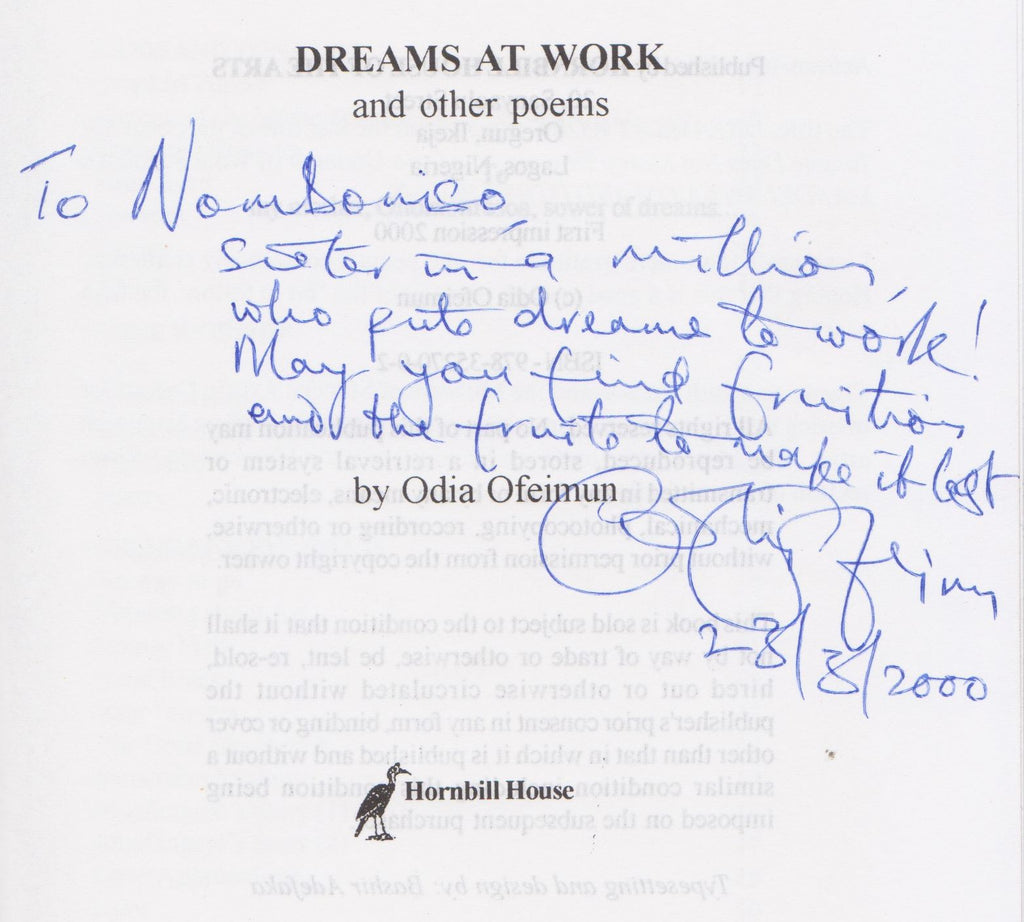 DREAMS AT WORK
and other poems
To Nomboniso
Sister in a million
who puts dreams to work!
May you find fruition
and the fruits to make it last
by Odia Ofeimun
Odia Ofeimun
23/3/2000
Hornbill House